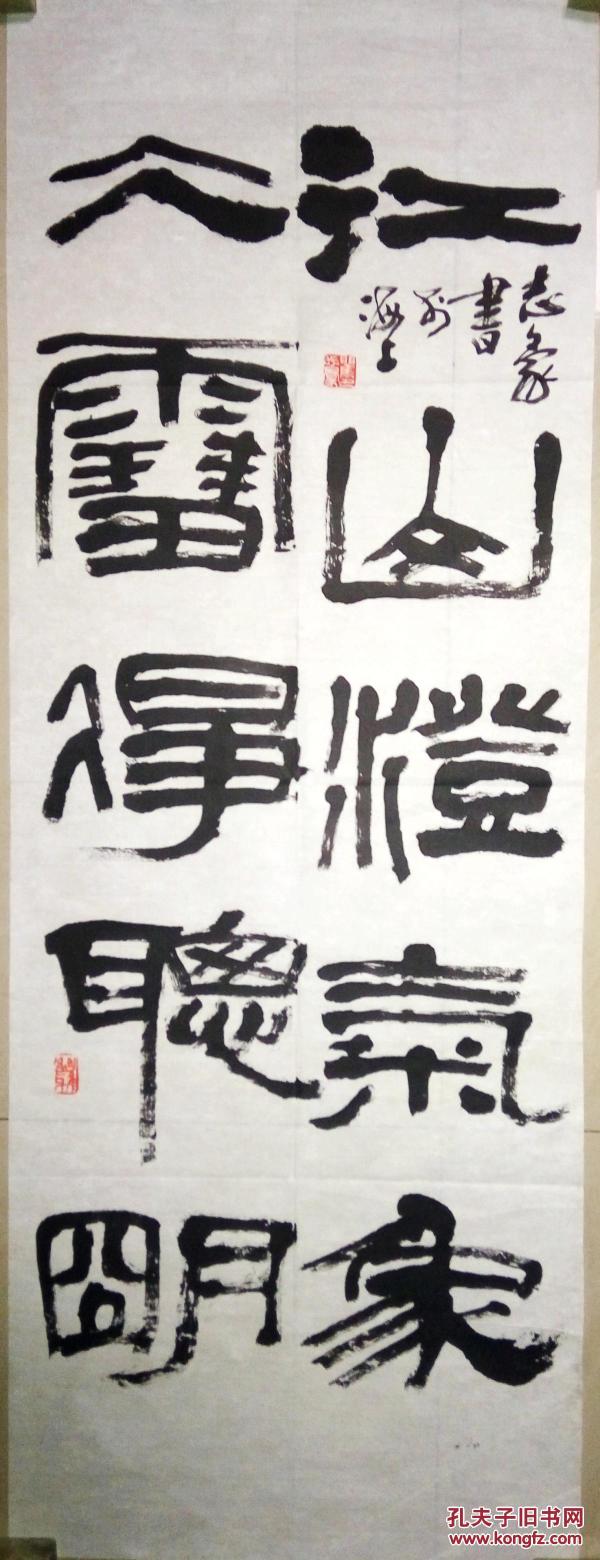 江山澄氣象
仌雪凈聰朙
志象
書
於
海上
孔夫子旧书网
www.kongfz.com